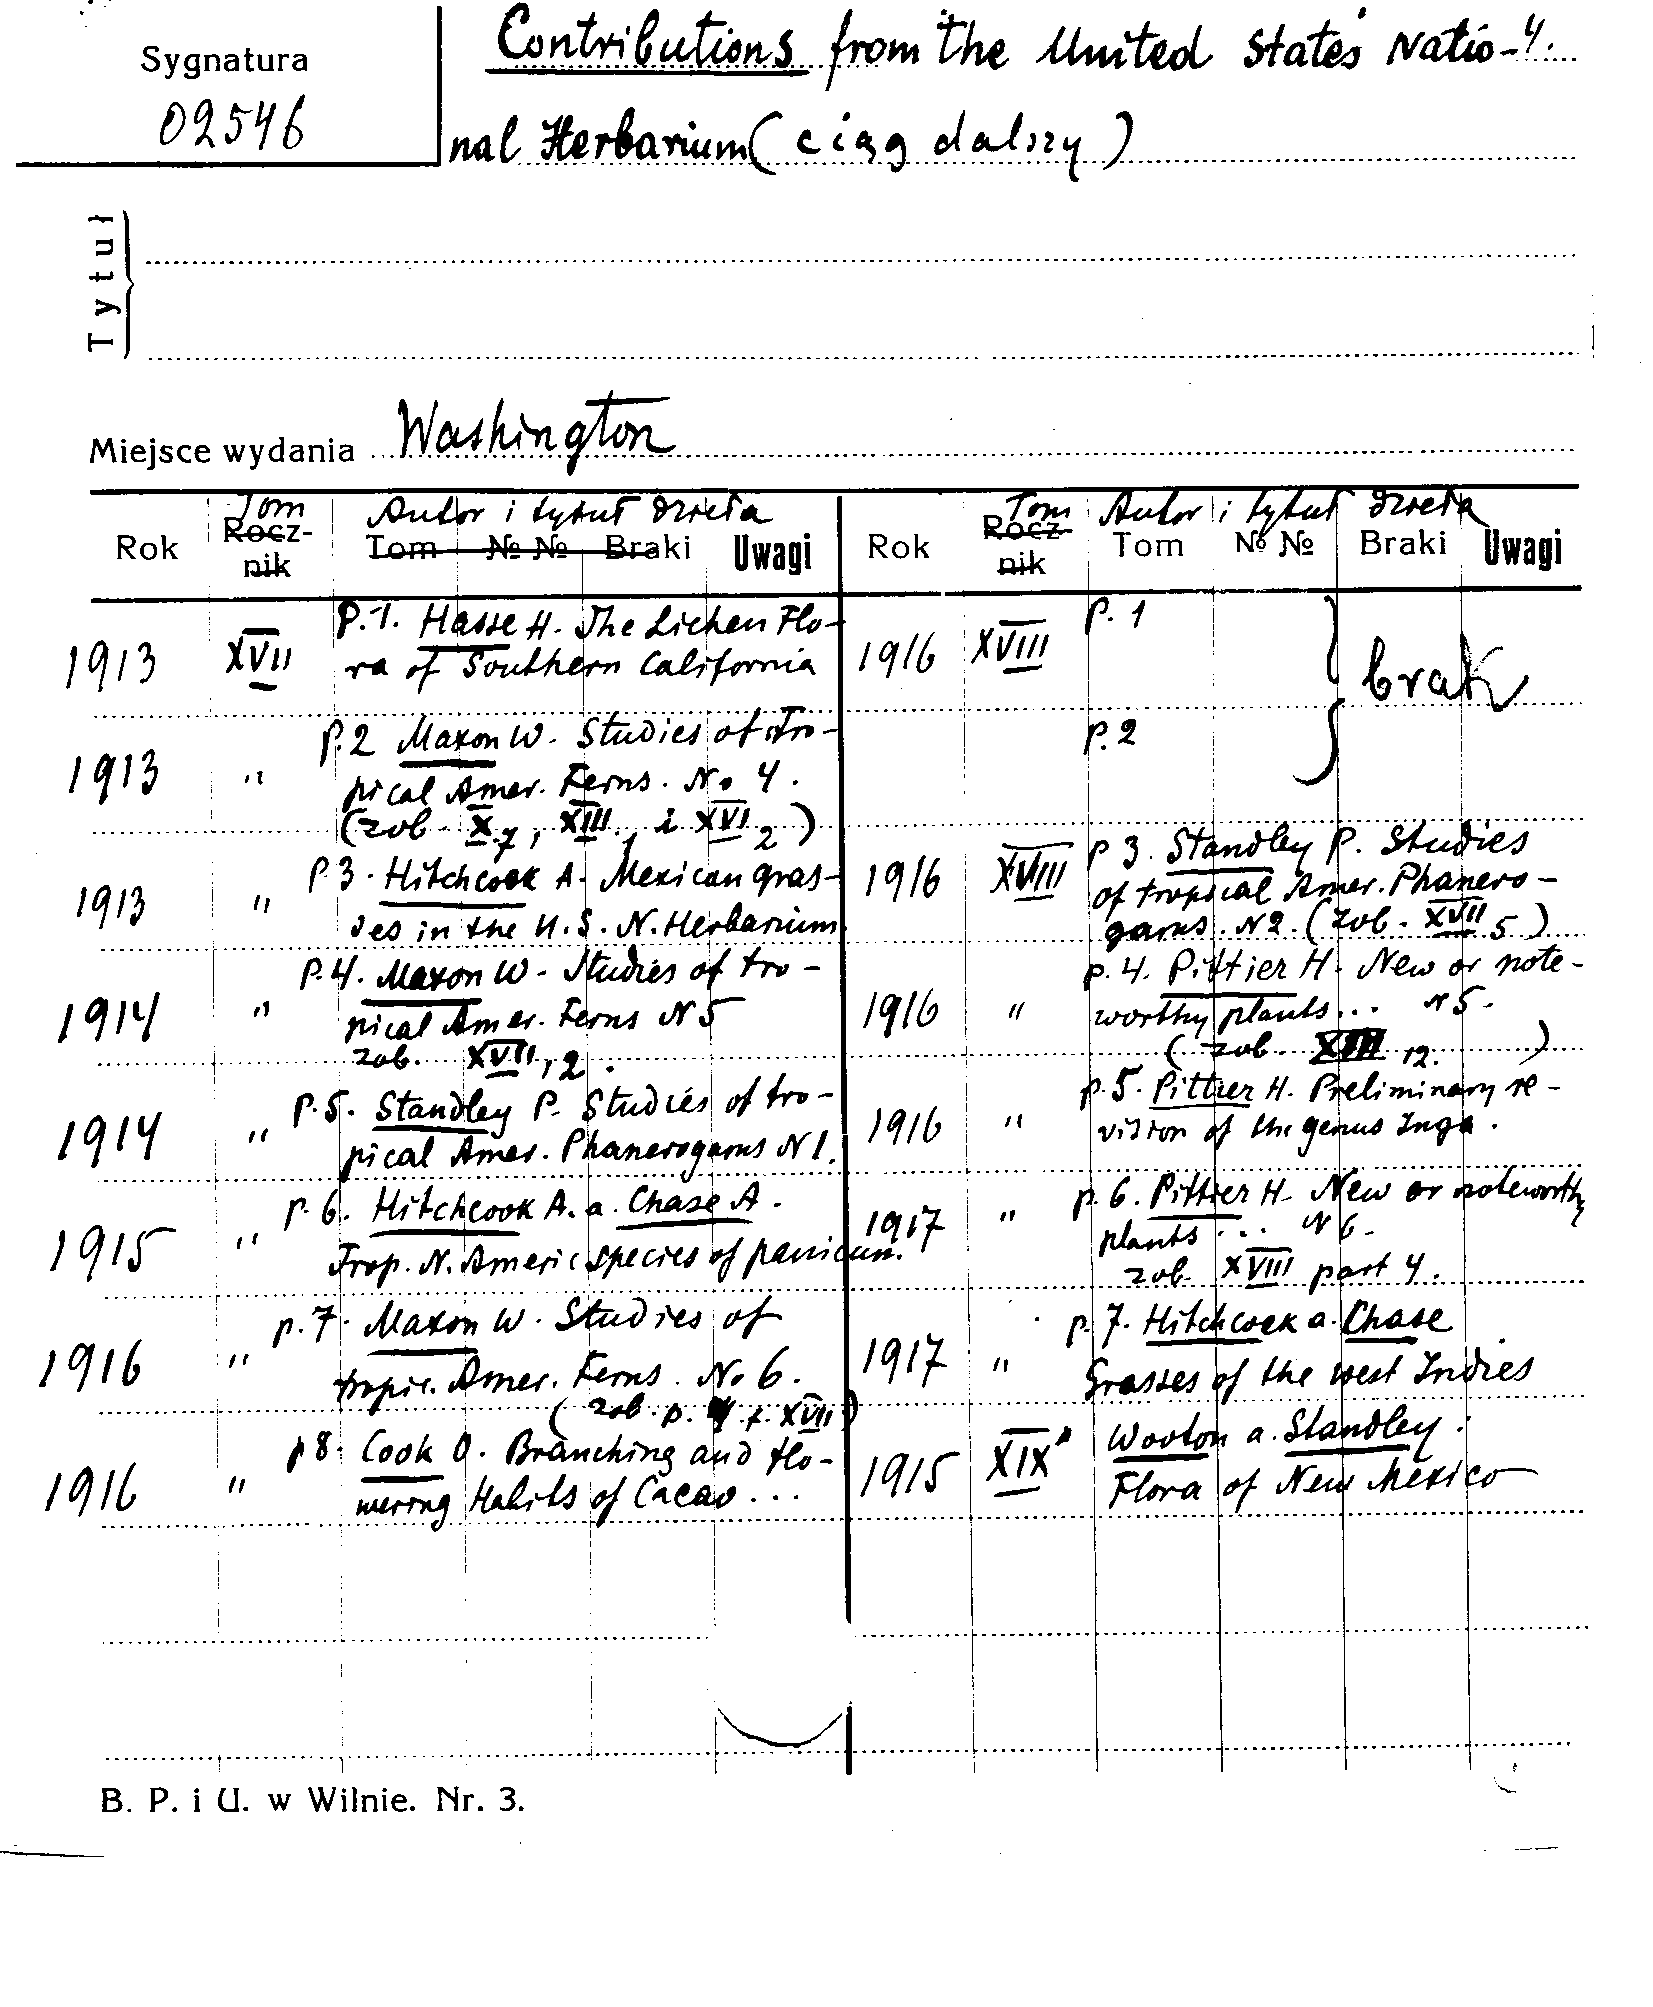 Sygnatura
02546
Contributions from the United States Natio- 4.
nal Herbarium ( ciąg dalszy )
Tytuł
Miejsce wydania Washington
Tom Autor i tytuł dzieła
Rok Rocz-nik Tom №№ Braki Uwagi
Tom Autor i tytuł dzieła
Rok Rocz-nik Tom №№ Braki Uwagi
1913 XVII p.1. Hasse H. The Lichen Flo-
ra of Southern California
1913 " p.2 Maxon W. Studies of tro-
pical Amer. Ferns. No 4.
(zob. X 7, XIII 1 i XVI 2)
1913 " p 3. Hitchcock A. Mexican gras-
ses in the U.S. N. Herbarium
1914 " p.4. Maxon W. Studies of tro-
pical Amer. Ferns N 5
zob. XVII, 2.
1914 " p.5. Standley P. Studies of tro-
pical Amer. Phanerogams N 1.
1915 " p. 6. Hitchcock A. a. Chase A.
Trop. N. Americ species of panicum.
1916 " p. 7. Maxon W. Studies of
tropic. Amer. Ferns. No 6.
( zob. p. 4 t. XVII )
1916 " p 8. Cook O. Branching and flo-
wering Habits of Cacao ...
1916 XVIII p. 1
p. 2
brak
1916 XVIII p 3. Standley P. Studies
of tropical Amer. Phanero-
gams. N 2. ( zob. XVII 5 )
1916 " p. 4. Pittier H. New or note-
worthy plants... N 5.
( zob. XIII 12. )
1916 " p. 5. Pittier H. Preliminary re-
vision of the genus Inga.
1917 " p. 6. Pittier H. New or noteworthy
plants ... N 6.
zob. XVIII part 4.
1917 " p. 7. Hitchcock a. Chase
Grasses of the west Indies
1915 XIX Wooton a. Standley:
Flora of New Mexico
B. P. i U. w Wilnie. Nr. 3.